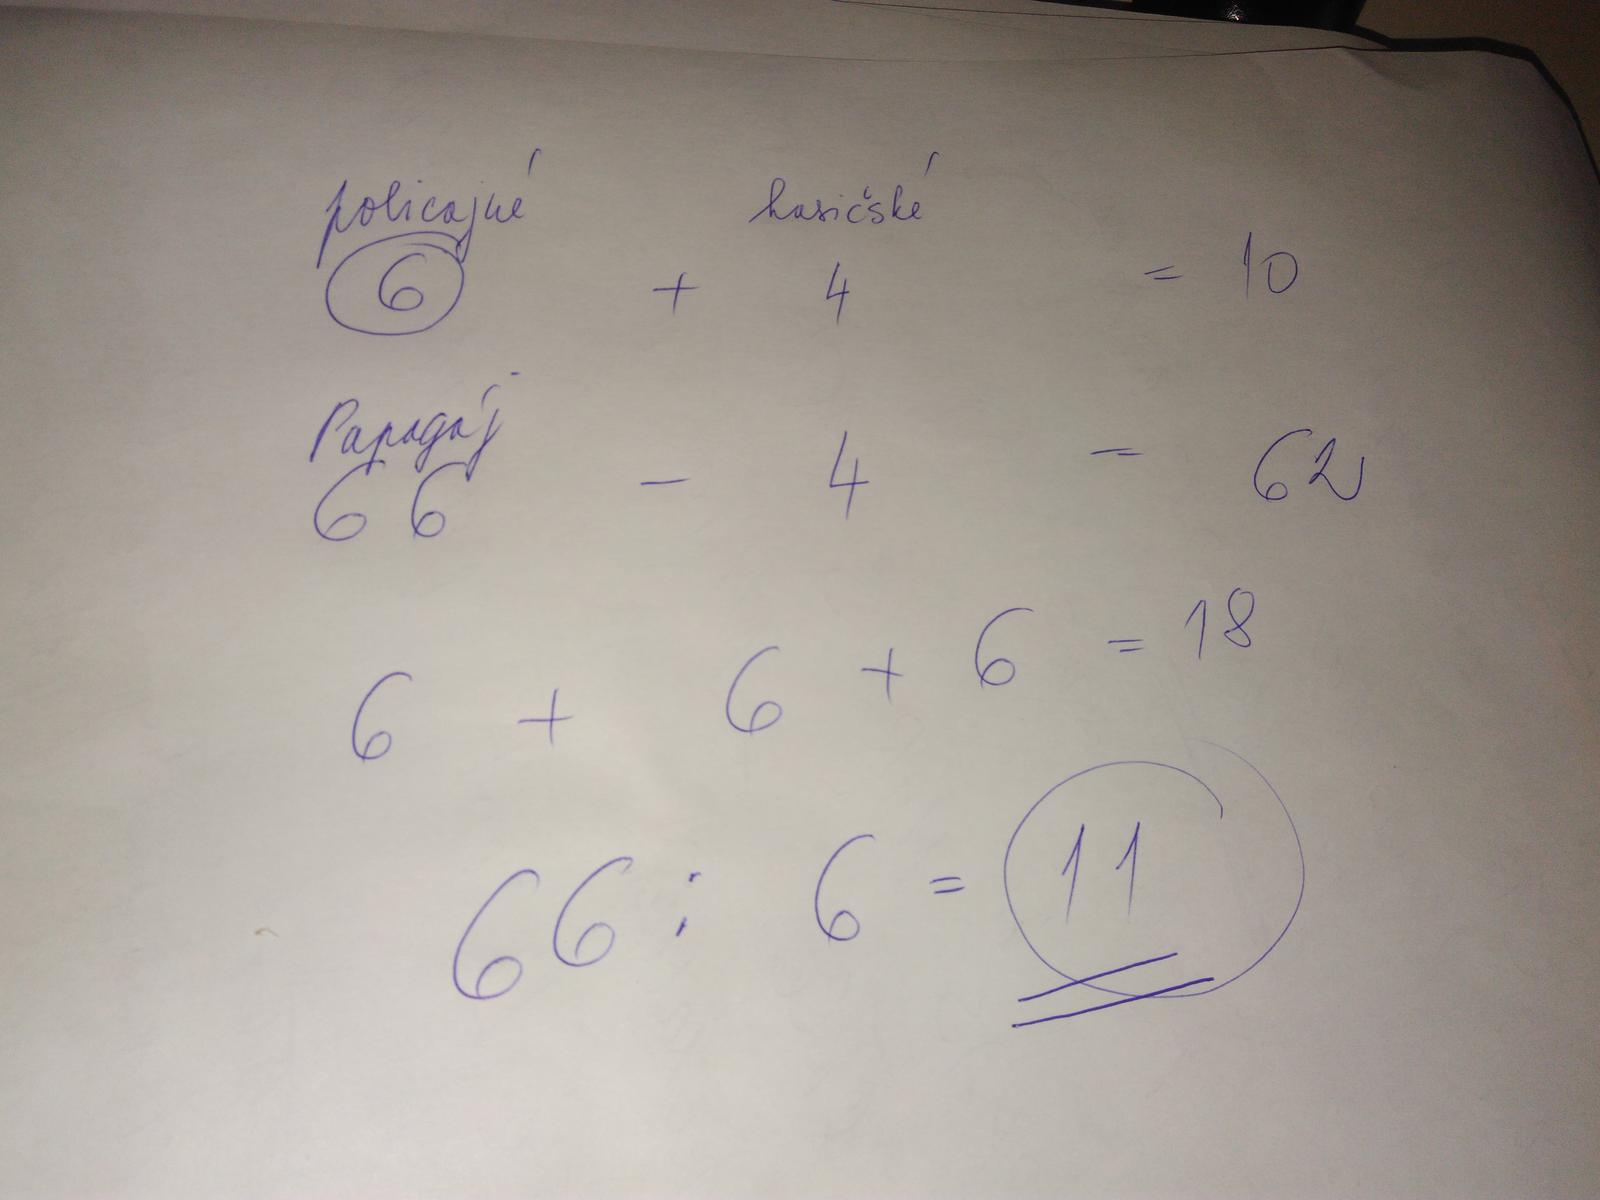 policajné hasičské
6 + 4 = 10
Papagáj
66 - 4 = 62
6 + 6 + 6 = 18
66 : 6 = 11